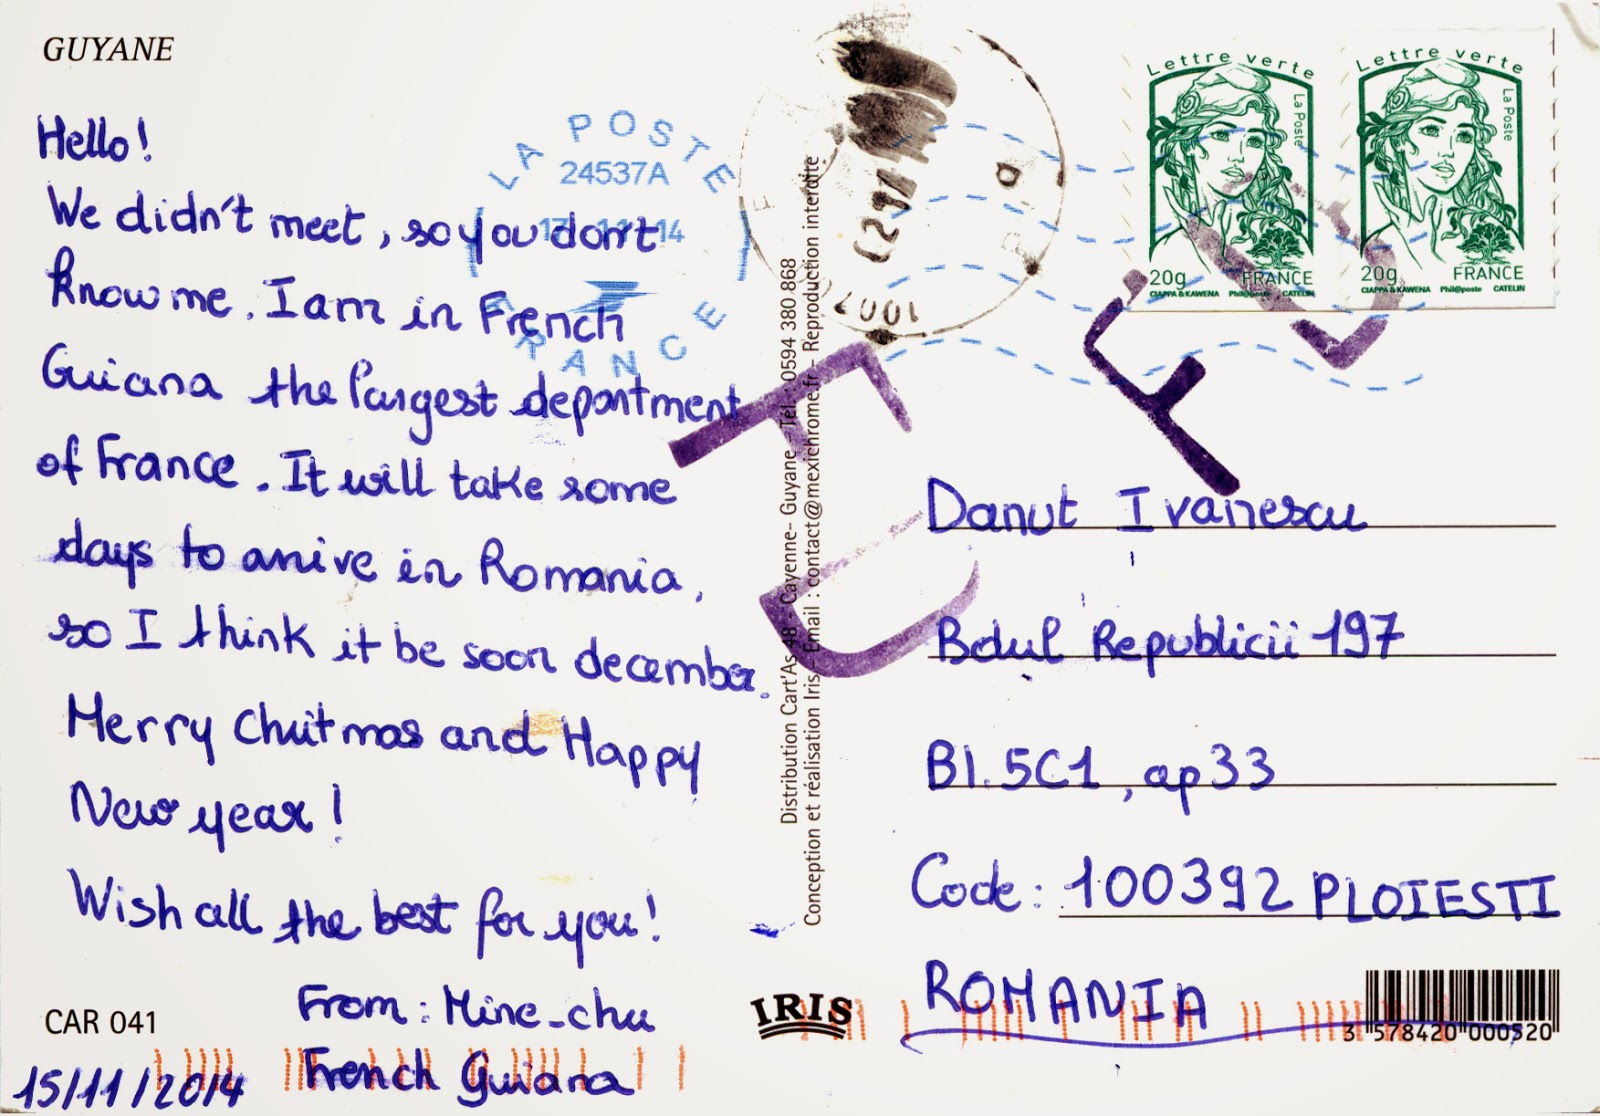 GUYANE
Hello!
We didn't meet, so you don't
know me. I am in French
Guiana the largest department
of France. It will take some
days to arrive in Romania,
so I think it be soon december.
Merry Chuitmas and Happy
New year!
Wish all the best for you!
From: Mine-chu
French Guiana
CAR 041
15/11/2014
LA POSTE
24537A
14
FRANCE
Distribution Cart'As 48 - Cayenne- Guyane - Tél. : 0594 380 868
Conception et réalisation Iris - Email : contact@mexichrome.fr - Reproduction interdite
IRIS
Lettre verte
La Poste
20g FRANCE
CIAPPA & KAWENA Phil@poste CATELIN
Lettre verte
La Poste
20g FRANCE
CIAPPA & KAWENA Phil@poste CATELIN
Danut Ivanescu
Bdul Republicii 197
Bl. 5C1, ap33
Code: 100392 PLOIESTI
ROMANIA
3 578420 000520